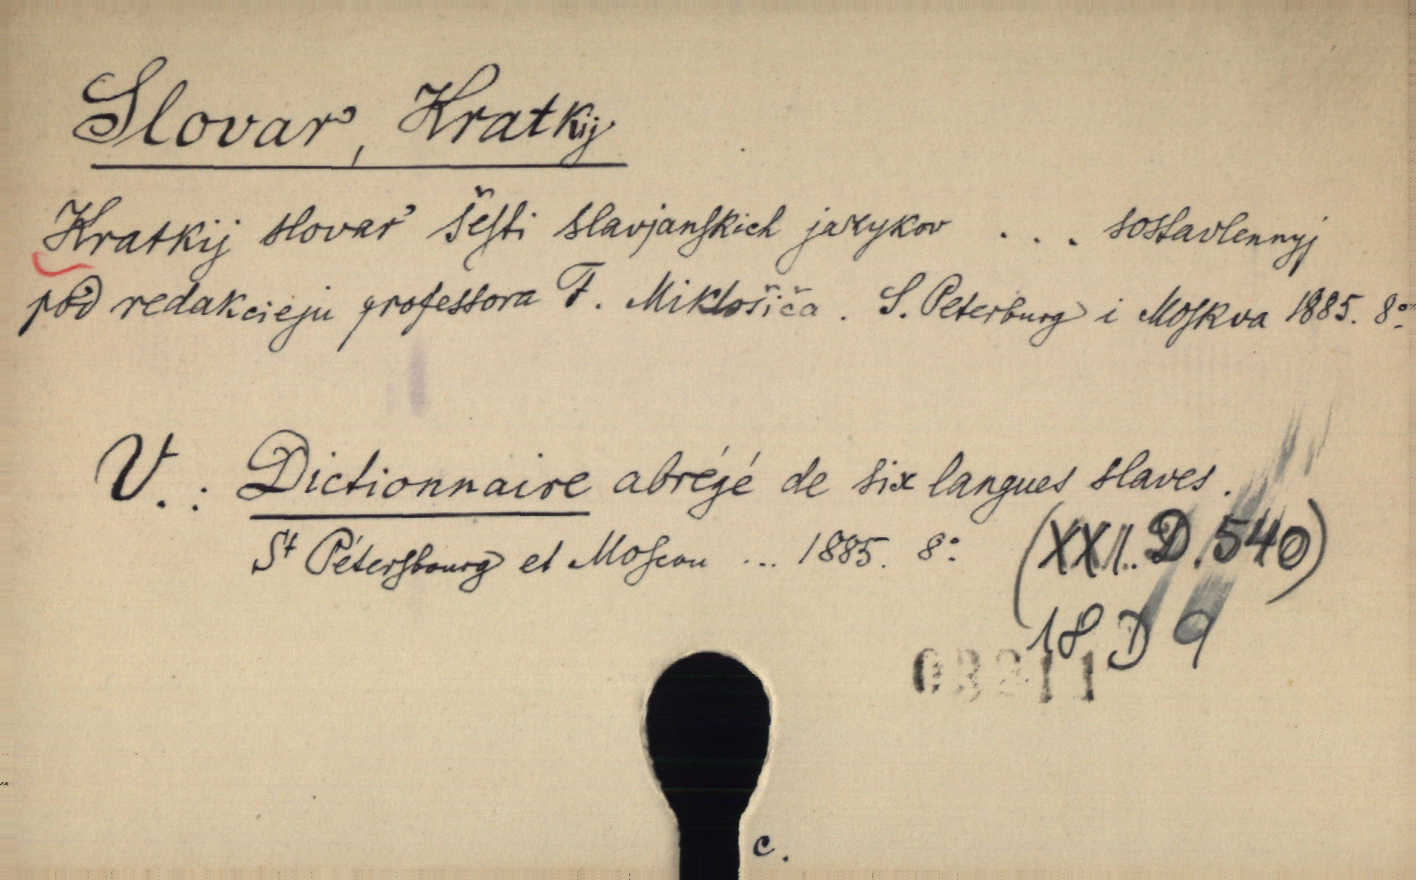 Slovar', Kratkij
Kratkij slovar' šesti slavjanskich jazykov . . . sostavlennyj
pod redakcieju professora F. Miklošiča. S. Peterburg i Moskva 1885. 8°.
V.: Dictionnaire abrégé de six langues slaves.
St Pétersbourg et Moscou ... 1885. 8°.
(XXI. D. 540)
18 D 9
03211
c.